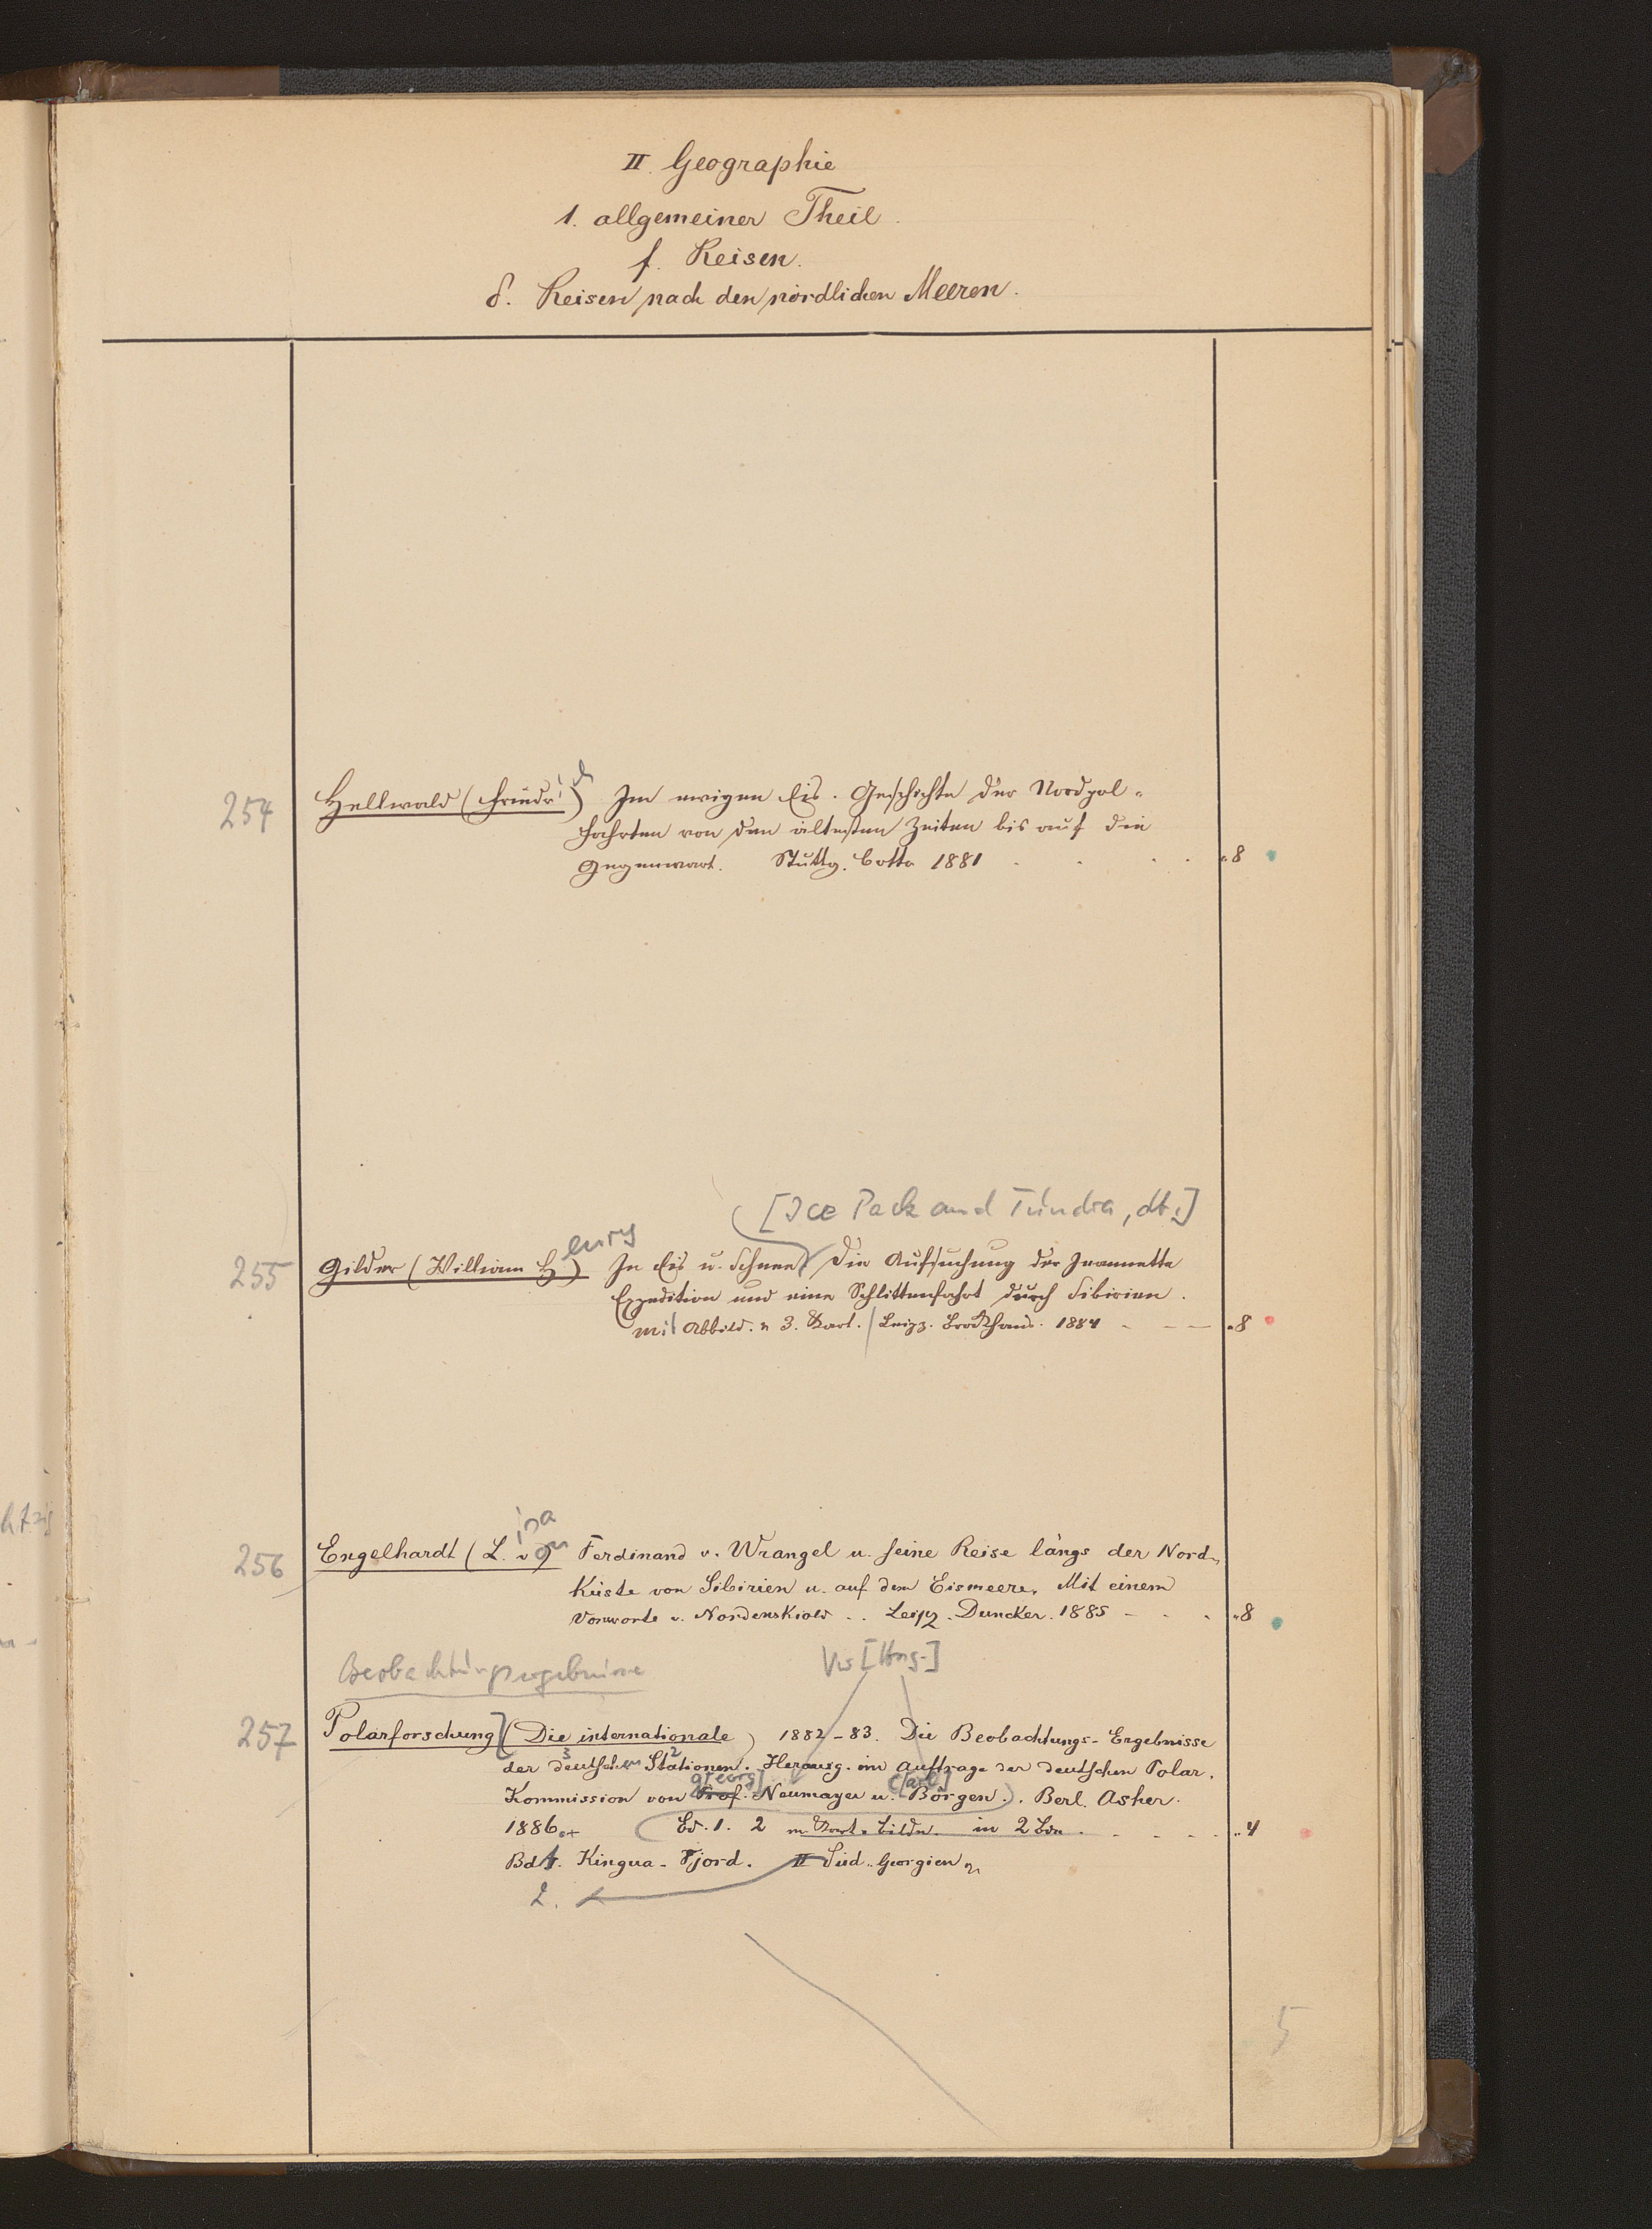 II. Geographie
1. allgemeiner Theil.
f. Reisen.
δ. Reisen nach den nördlichen Meeren.
254 Hellwald (Friedrich) Im ewigen Eis. Geschichte der Nordpol-
fahrten von den ältesten Zeiten bis auf die
Gegenwart. Stuttg. Cotta 1881 . . . . „8
[Ice Pack and Tundra, dt.]
255 Gilder (William Henry) In Eis u. Schnee. Die Aufsuchung der Jeannette
Expedition und eine Schlittenfahrt durch Sibirien.
mit Abbild. u 3. Kart. / Leipz. Brockhaus. 1884 - - — „8
256 Engelhardt (L. von) Ferdinand v. Wrangel u. seine Reise längs der Nord-
Küste von Sibirien u. auf dem Eismeere. Mit einem
Vorworte v. Nordenskiold .. Leipz. Duncker. 1885 - . . „8
Beobachtungsergebnisse [Hrsg.]
257 Polarforschung] (Die internationale) 1882-83. Die Beobachtungs-Ergebnisse
der 3 deutschen 2 Stationen. Herausg. im Auftrage der deutschen Polar.
G[eorg] C[arl]
Kommission von Prof. Neumayer u. Börgen.). Berl. Asher.
1886. (Bd. 1. 2 m. Kart. bildn. in 2 Bdn. . - - - . „4
Bd 1. Kingua-Fjord. II Süd-Georgien
2.
5